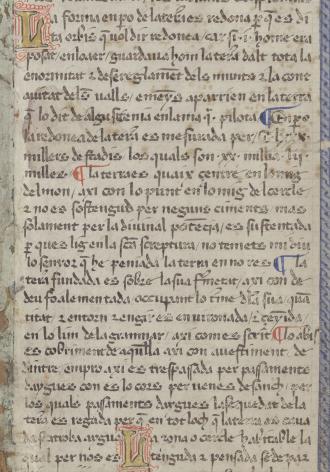 La forma en po de la terra es redona per que es di
ta orbis que vol dir redonea / car si .i. home era
posat en lo aer / guardava hom la terra dalt tota la
enormitat e desreglament dels munts e la conc
quitat dels valls / e menys aparrien en la terra
q lo dit dalgu si tenia en la ma .i. pilota En po
la redonea de la terra es mesurada per
millers de stadis los quals son .xx. milia
milles La terra es quaix centre en lo mig
del mon / axi con lo punt en lo mig del cercle
e no es sostengud per neguns ciments mas
solament per la divinal potecia / es sustentada
per que's lig en la scta scriptura / no temets mi diu
lo senyor q he penjada la terra en no res La
terra fundada es sobre la sua fermetat / axi con de
deu fo alementada occupant lo
titat e entorn e
en lo lim de la gran mar / axi com es scrit Lo abis
es cobriment de aquella axi con vestiment de
dintre empro axi es trespassada per passaments
daygues con es lo cors per venes de sanch / per
los quals passaments daygues la sequedat de la
terra es regada per q en tot loch q la terra es cava
da si troba aygua La zona o cercle habitable la
qual per nos es tenguda e pensada se depar